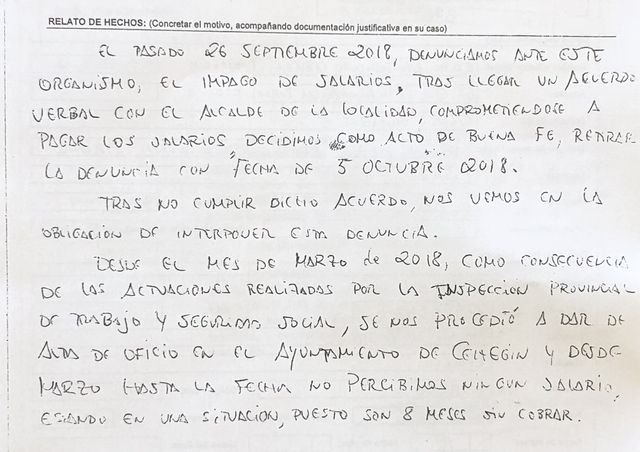 RELATO DE HECHOS: (Concretar el motivo, acompañando documentación justificativa en su caso)
EL PASADO 26 SEPTIEMBRE 2018, DENUNCIAMOS ANTE ESTE
ORGANISMO, EL IMPAGO DE SALARIOS, TRAS LLEGAR UN ACUERDO
VERBAL CON EL ALCALDE DE LA LOCALIDAD, COMPROMETIENDOSE A
PAGAR LOS SALARIOS DECIDIMOS COMO ACTO DE BUENA FE, RETIRAR
LA DENUNCIA CON FECHA DE 5 OCTUBRE 2018.
TRAS NO CUMPLIR DICHO ACUERDO, NOS VEMOS EN LA
OBLIGACIÓN DE INTERPONER ESTA DENUNCIA.
DESDE EL MES DE MARZO de 2018, COMO CONSECUENCIA
DE LAS ACTUACIONES REALIZADAS POR LA INSPECCIÓN PROVINCIAL
DE TRABAJO Y SEGURIDAD SOCIAL, SE NOS PROCEDIÓ A DAR DE
ALTA DE OFICIO EN EL AYUNTAMIENTO DE CEHEGIN Y DESDE
MARZO HASTA LA FECHA NO PERCIBIMOS NINGUN SALARIO,
ESTANDO EN UNA SITUACIÓN, PUESTO SON 8 MESES SIN COBRAR.